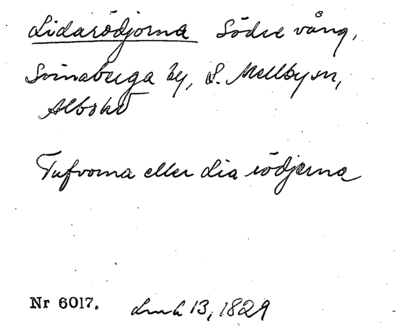 Lidarödjorna Södre vång,
Svinaberga by, S. Mellby sn,
Albo hd
Tufvorna eller Lia rödjorna
Nr 6017. Lmh 13, 1829